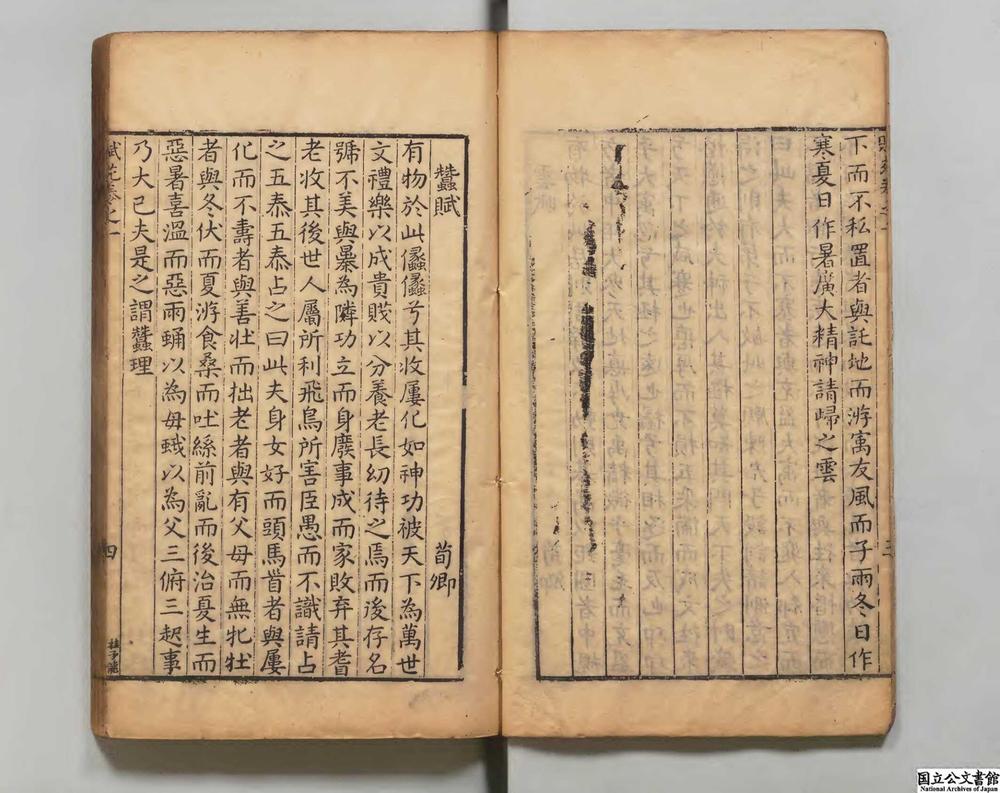 下而不私置者與託地而游宇友風而子雨冬日作
寒夏日作暑廣大精神請歸之雲
三
蠶賦 荀卿
有物於此儵儵兮其收屢化如神功被天下為萬世
文禮樂以成貴賤以分養老長幼待之焉而後存名
號不美與暴為隣功立而身廢事成而家敗弃其耆
老收其後世人屬所利飛鳥所害臣愚而不識請占
之五泰五泰占之曰此夫身女好而頭馬首者與屢
化而不壽者與善壯而拙老者與有父母而無牝牡
者與冬伏而夏游食桑而吐絲前亂而後治夏生而
惡暑喜溫而惡雨蛹以為母蛾以為父三俯三起事
乃大已夫是之謂蠶理
賦苑卷之一
四
国立公文書館
National Archives of Japan